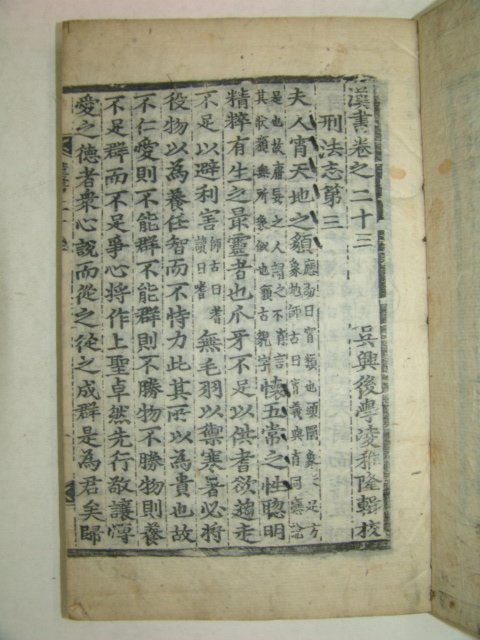 漢書卷之二十三　吳興後學凌稚隆輯校
刑法志第三
夫人宵天地之䫉
應劭曰宵類也頭圜象天足方
象地師古曰宵義與肖同應說
是也故庸妄之人謂之不肖言
其狀䫉無所象似也䫉古貌字
懷五常之性聰明
精粹有生之最靈者也爪牙不足以供耆欲趨走
不足以避利害
師古曰耆
讀曰嗜
無毛羽以禦寒暑必將
役物以為養任智而不恃力此其所以為貴也故
不仁愛則不能群不能群則不勝物不勝物則養
不足群而不足爭心將作上聖卓然先行敬讓博
愛之德者衆心說而從之從之成群是為君矣歸